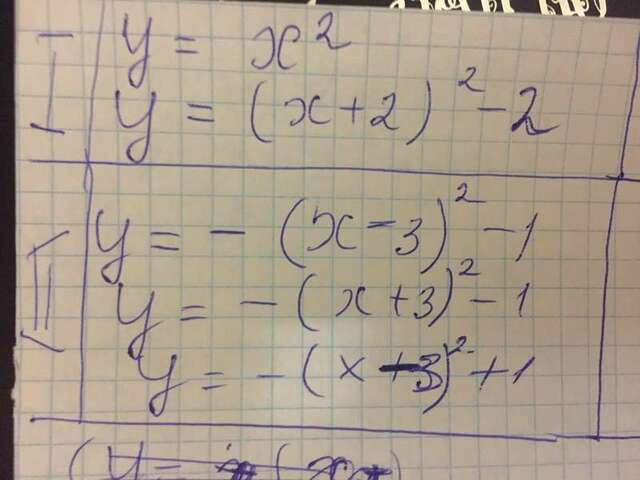 I
y = x²
y = (x+2)² - 2
II
y = - (x-3)² - 1
y = - (x+3)² - 1
y = - (x+3)² + 1
(y =